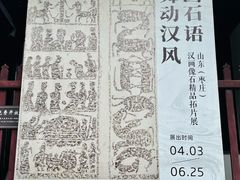 画石语
舞动汉风
山东（枣庄）
汉画像石精品拓片展
展出时间
04.03
06.25